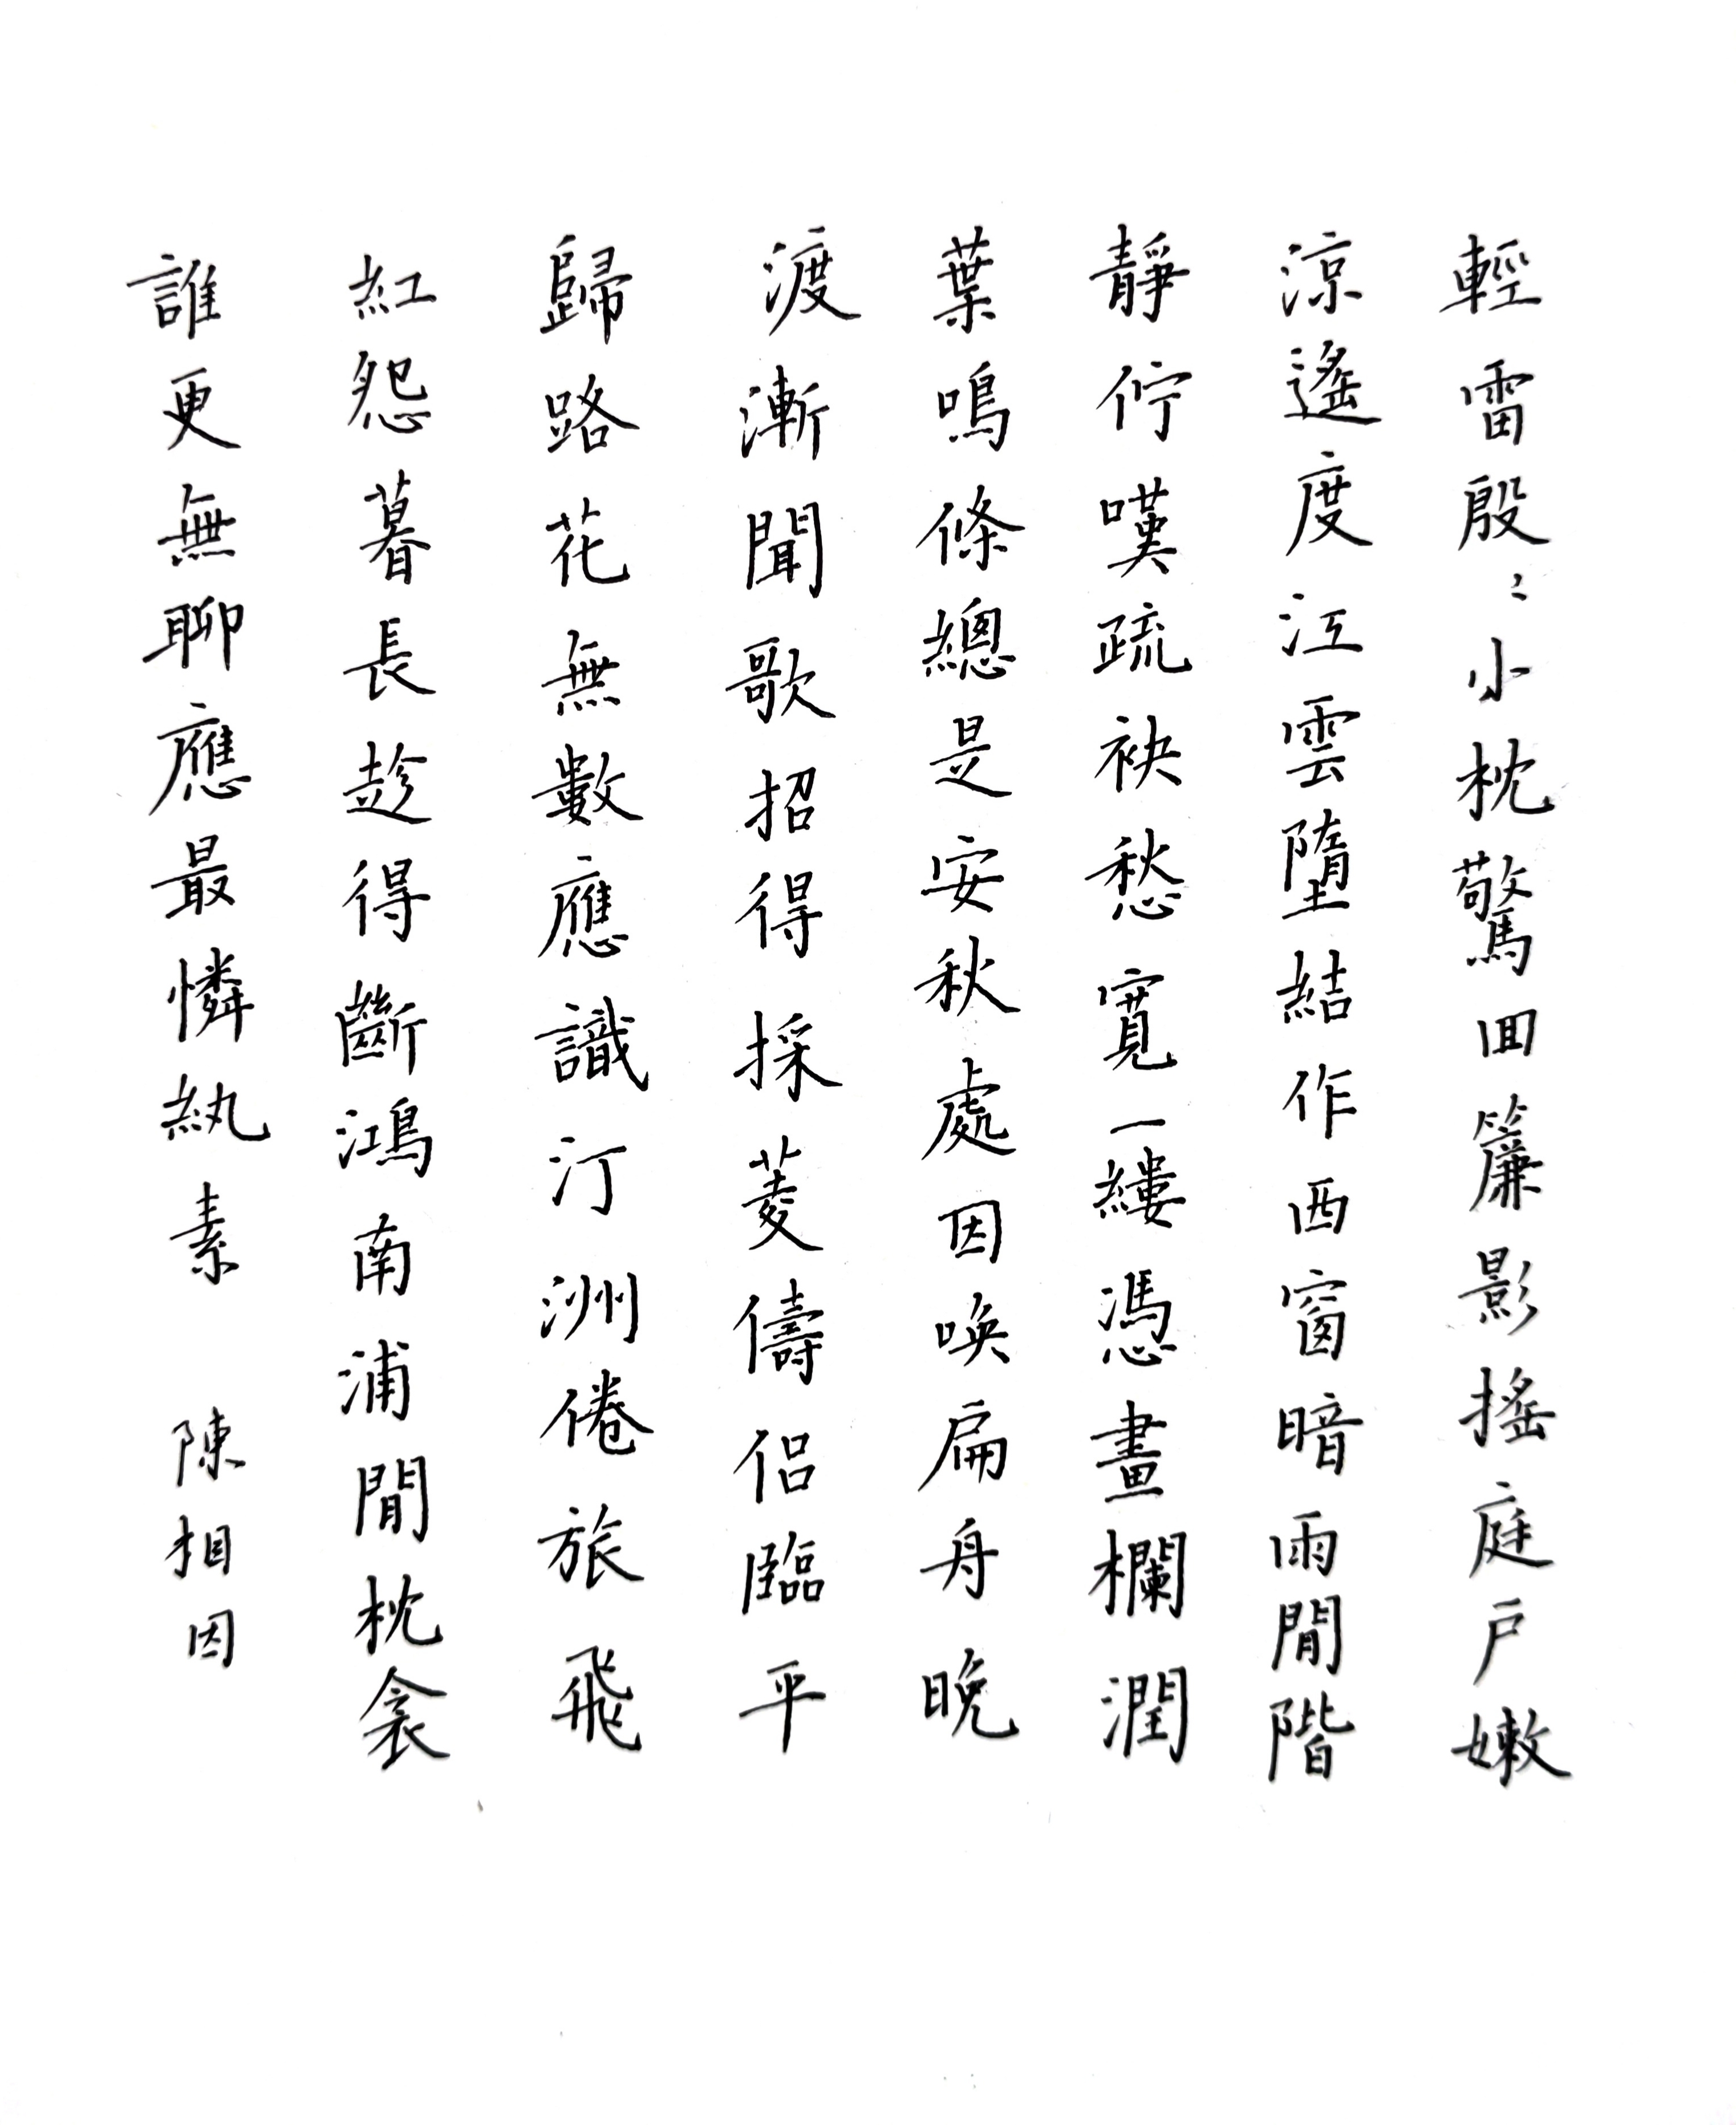 輕雷殷〻小枕驚回簾影搖庭戶嫩
涼遙度江雲墮結作西窗暗雨閒階
靜佇嘆疏袂愁寬一縷憑畫欄潤
葉鳴條總是安秋處因喚扁舟晚
渡漸聞歌招得採菱儔侶臨平
歸路花無數應識汀洲倦旅飛
紅怨暮長趁得斷鴻南浦閒枕衾
誰更無聊應最憐紈素 陳相因